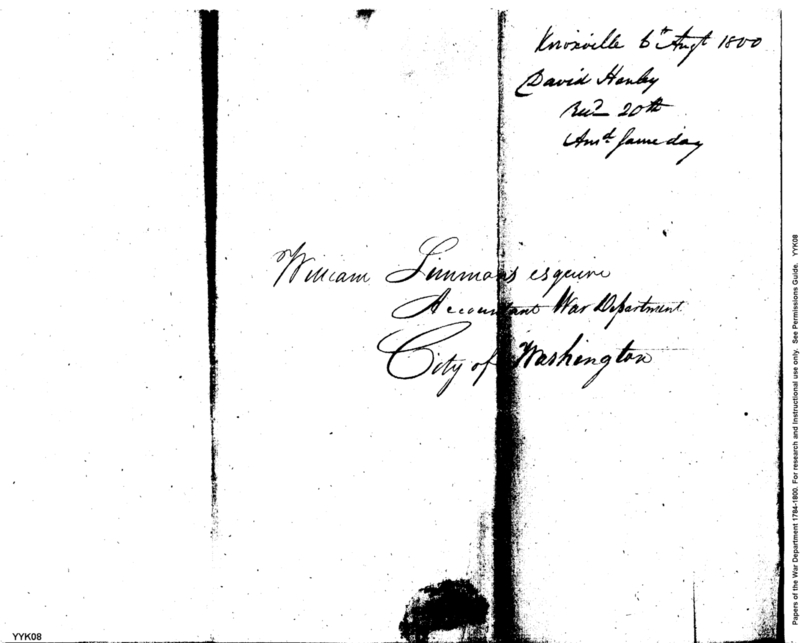 Knoxville 6th Augt 1800
David Henley
Recd 20th
Ansd same day
William Simmons esquire
Accountant War Department
City of Washington
YYK08
Papers of the War Department 1784-1800. For research and instructional use only. See Permissions Guide. YYK08